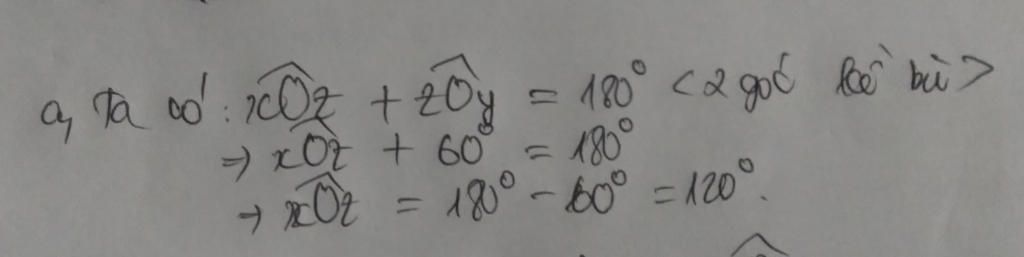 a, Ta có: xOz + zOy = 180° <2 góc kề bù>
→ xOz + 60° = 180°
→ xOz = 180° - 60° = 120°.